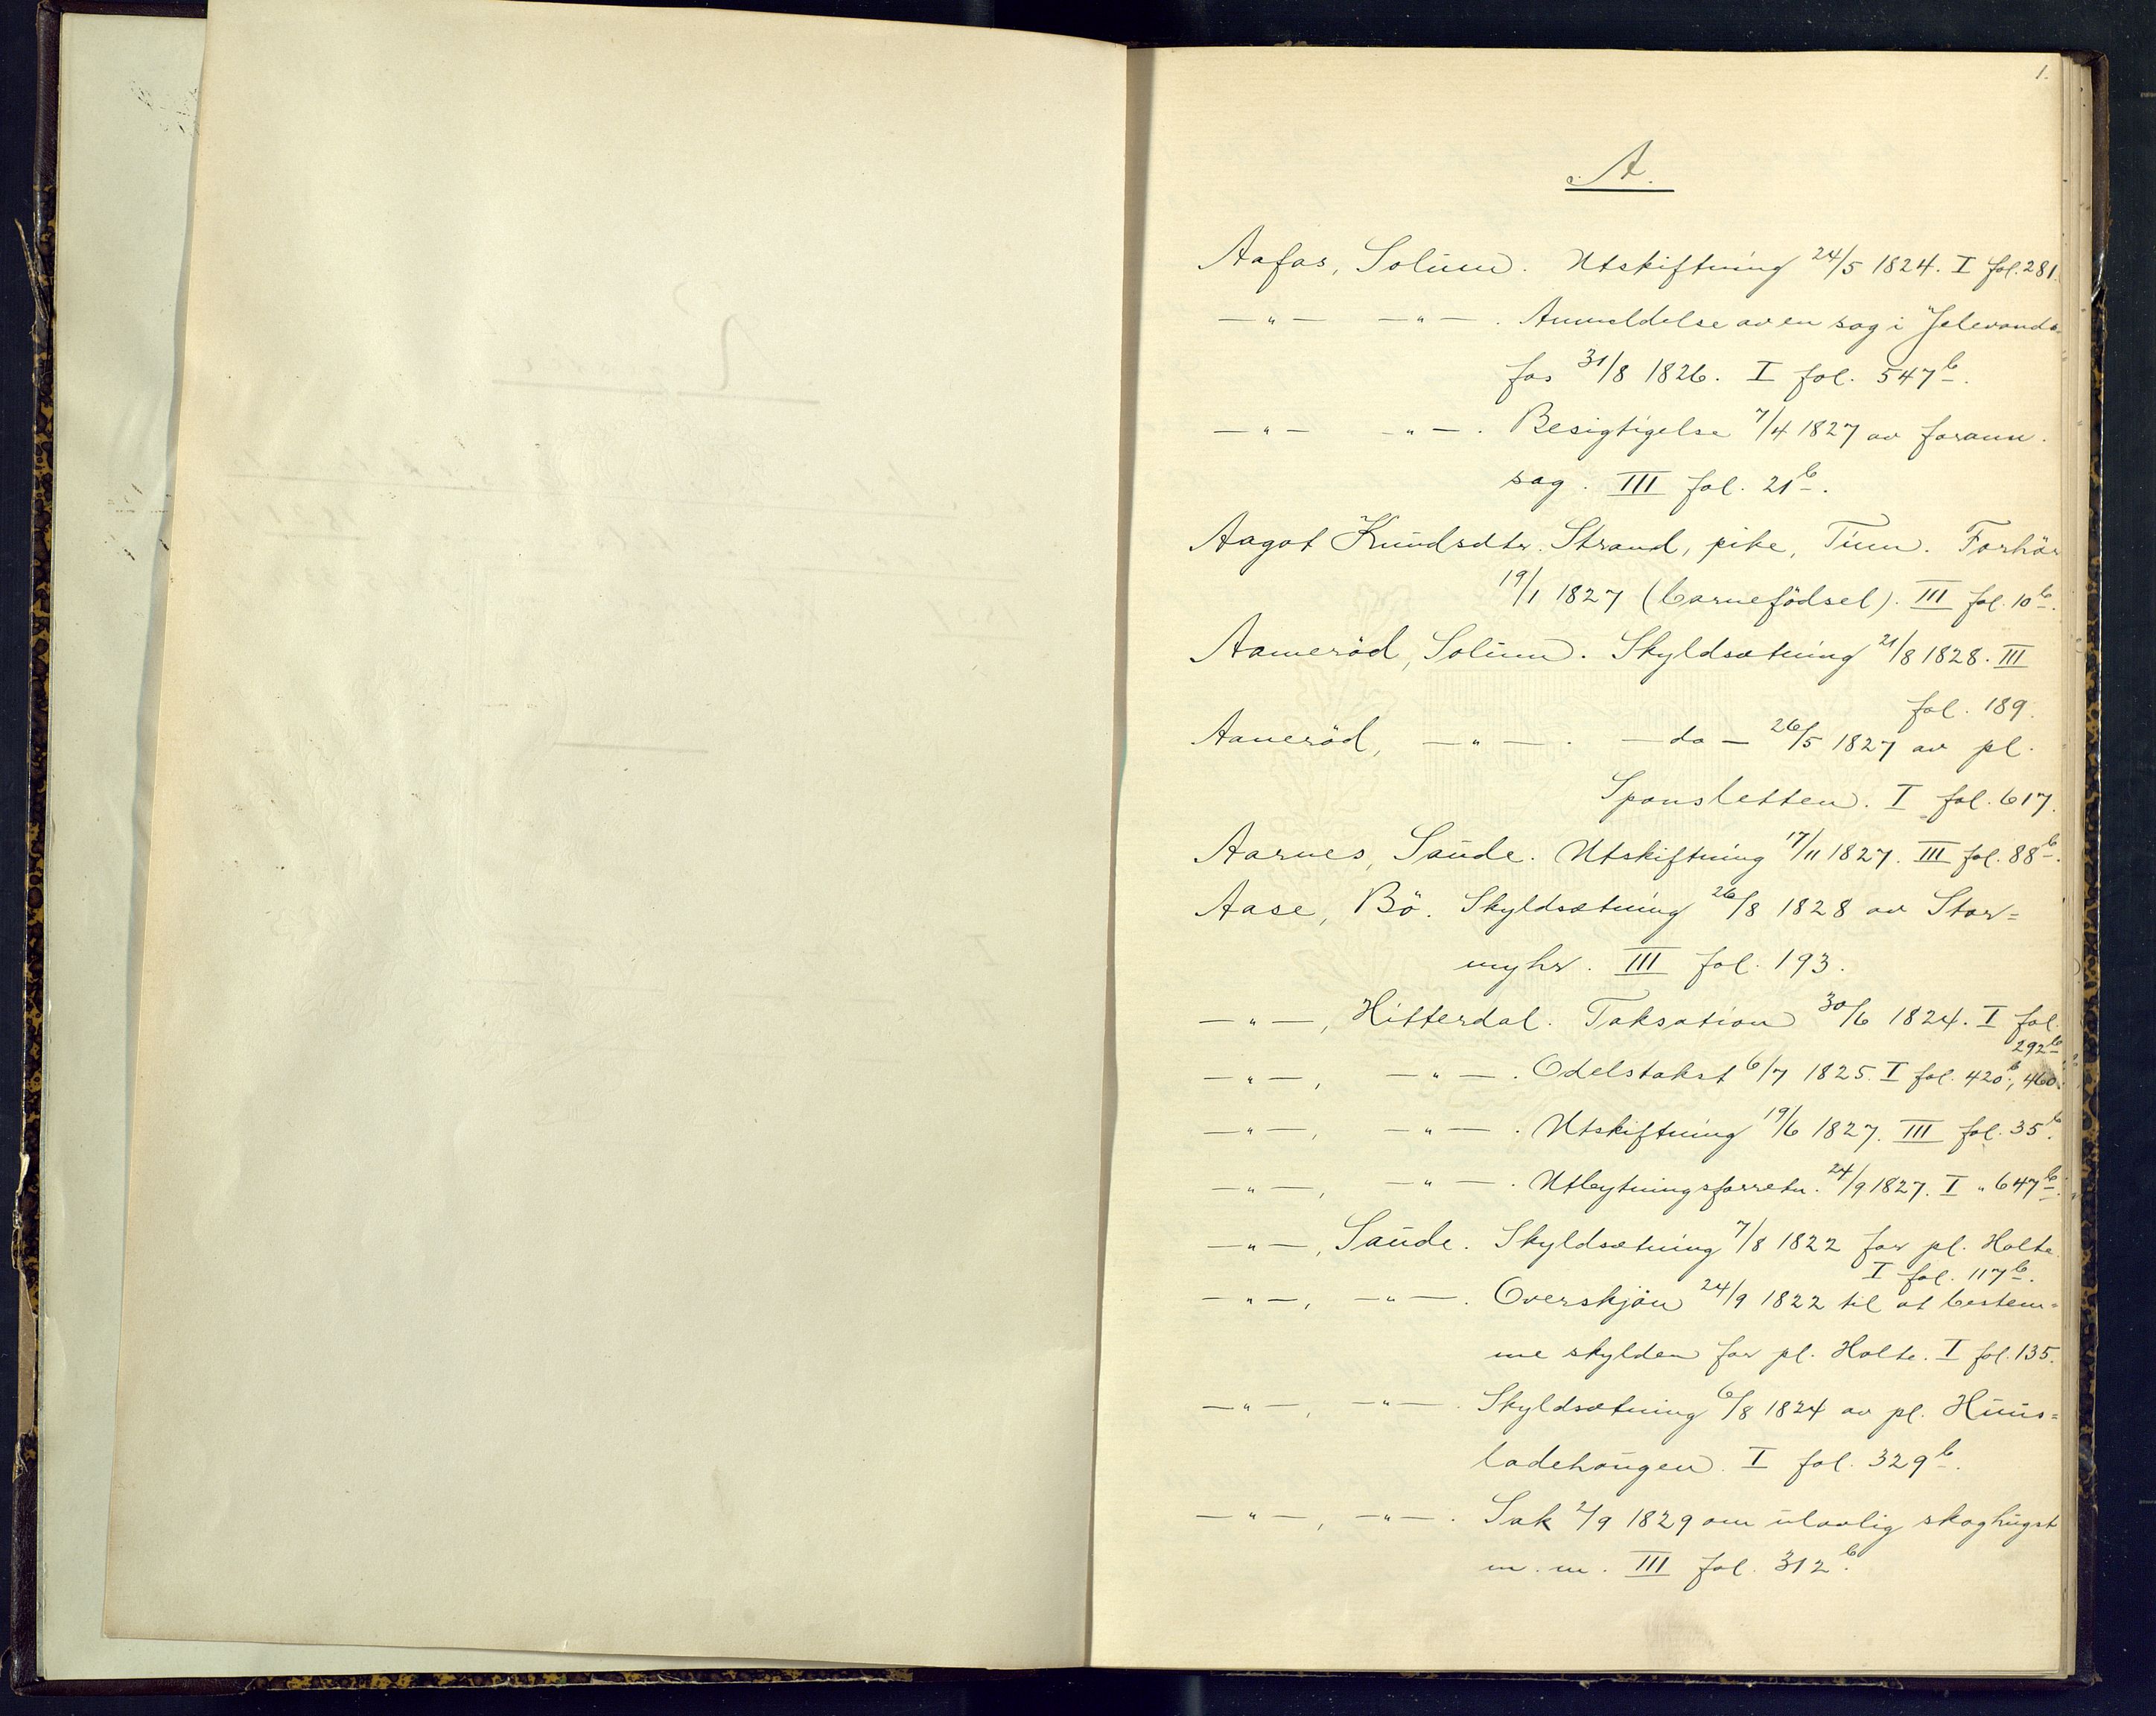 1.
A.
Aafos, Solum. Utskiftning 24/5 1824. I fol. 281.
— " — — " — . Anmeldelse av en sag i Jelevands-
fos 31/8 1826. I fol. 547b.
— " — — " — . Besigtigelse 7/4 1827 av forann.
sag. III fol. 21b.
Aagot Knudsdtr. Strand, pike, Tinn. Forhör
19/1 1827 (barnefödsel). III fol. 10b.
Aameröd, Solum. Skyldsætning 21/8 1828. III
fol. 189.
Aaneröd, — " — . — do — 26/5 1827 av pl.
Sponsletten. I fol. 617.
Aarnes, Saude. Utskiftning 17/11 1827. III fol. 88b.
Aase, Bö. Skyldsætning 26/8 1828 av Stor=
myhr. III fol. 193.
— " —, Hitterdal. Taksation 30/6 1824. I fol.
292b
— " —, — " — . Odelstakst 6/7 1825. I fol. 420b, 460.
— " —, — " — . Utskiftning 19/6 1827. III fol. 35b.
— " —, — " — . Utbytningsforretn. 24/9 1827. I " 647b.
— " —, Saude. Skyldsætning 7/8 1822 for pl. Holte.
I fol. 117b.
— " —, — " — . Overskjön 24/9 1822 til at bestem=
me skylden for pl. Holte. I fol. 135.
— " —, — " — . Skyldsætning 6/8 1824 av pl. Huus=
ladehougen. I fol. 329b.
— " —, — " — . Sak 2/9 1829 om ulovlig skoghugst
m. m. III fol. 312b.